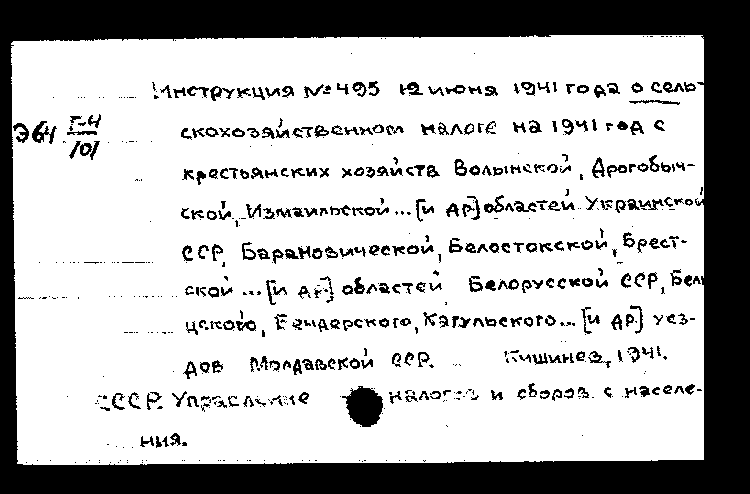 Инструкция №495 12 июня 1941 года о сель-
Э64 Г-4
101
скохозяйственном налоге на 1941 год с
крестьянских хозяйств Волынской, Дрогобыч-
ской, Измаильской... [и др.] областей Украинской
ССР, Барановической, Белостокской, Брест-
ской... [и др.] областей Белорусской ССР, Бель
цского, Бендерского, Кагульского... [и др.] уез-
дов Молдавской ССР. Кишинев, 1941.
СССР. Управление налогов и сборов с населе-
ния.